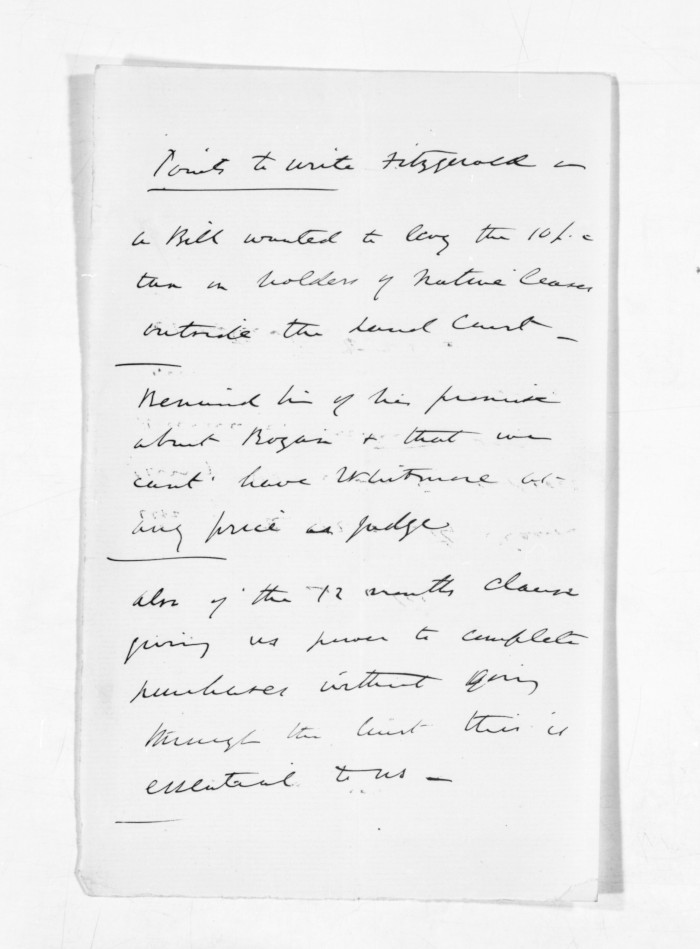 Points to write Fitzgerald on
a Bill wanted to levy the 10 p. c
tax on holders of Native leases
outside the Land Court –
Remind him of his promise
about Rogan & that we
cant have Whitmore at
any price as judge
also of the 12 months clause
giving us power to complete
purchases without going
through the Court this is
essential to us –